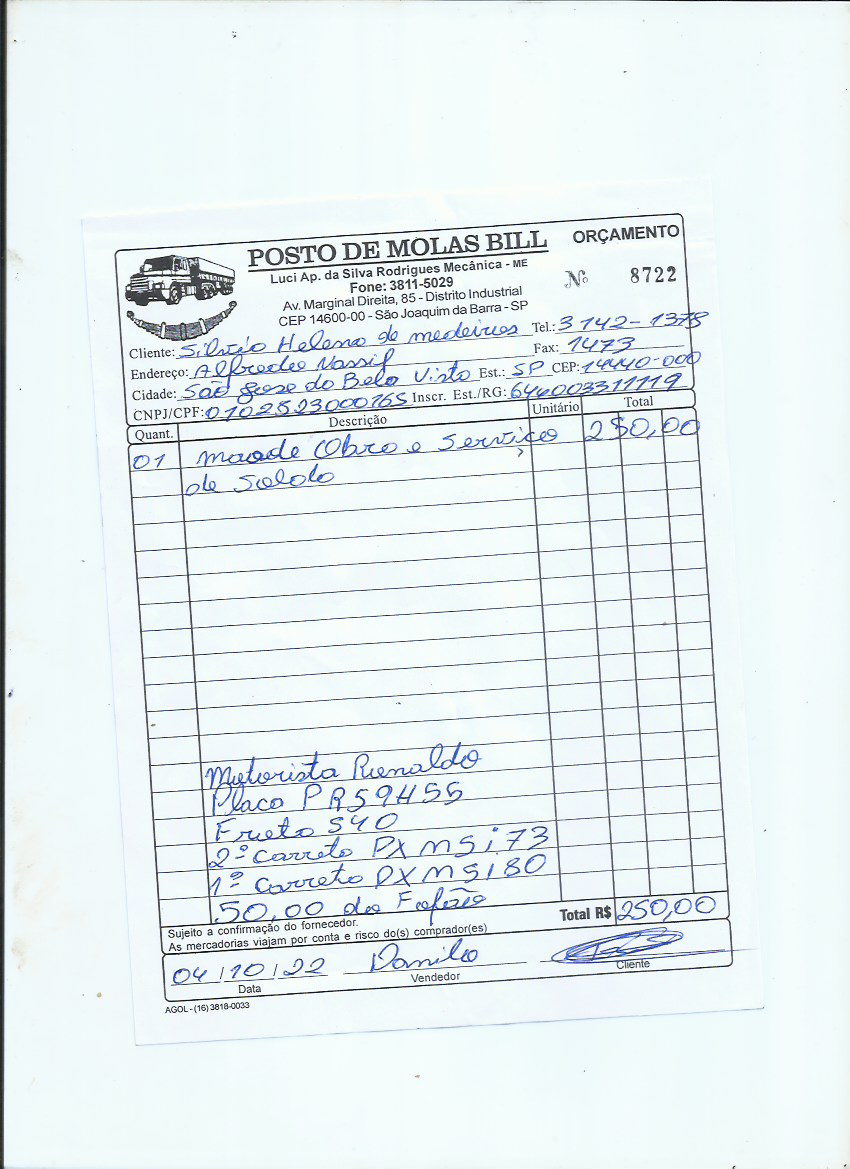 POSTO DE MOLAS BILL
ORÇAMENTO
Luci Ap. da Silva Rodrigues Mecânica - ME
Fone: 3811-5029
Nº 8722
Av. Marginal Direita, 85 - Distrito Industrial
CEP 14600-00 - São Joaquim da Barra - SP
Cliente: Silvio Helena de medeiros Tel.: 3142-1378
Endereço: Alfredo Nassif Fax: 1473
Cidade: São Jose do Bela Vista Est.: SP CEP: 14440-000
CNPJ/CPF: 0102523000165 Inscr. Est./RG: 646003311119
Quant. Descrição Unitário Total
01 maode Obra e Serviço 250,00
de Solda
Motorista Rienaldo
Placa PR59455
Frieta 540
2º Carreta PX M5i73
1º Carreta PXM5180
50,00 do
Sujeito a confirmação do fornecedor.
As mercadorias viajam por conta e risco do(s) comprador(es)
Total R$ 250,00
04/10/22 Danilo
Data Vendedor Cliente
AGOL - (16) 3818-0033